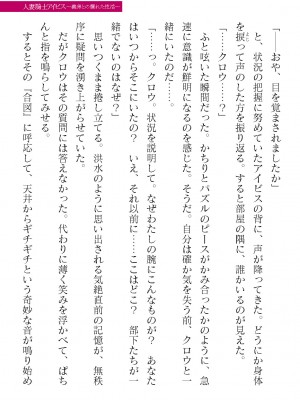 人妻騎士アイビス
「――おや、目を覚まされましたか」
と、状況の把握に努めていたアイビスの背に、声が降ってきた。どうにか身体
を振って声のした方を振り返る。すると部屋の隅に、誰かいるのが見えた。
「……クロウ……？」
ふと呟いた瞬間だった。かちりとパズルのピースがかみ合ったかのように、急
速に意識が鮮明になるのを感じた。そうだ。自分は確か気を失う前、クロウと一
緒にいたのだ。
「……っ。クロウ、状況を説明して。なぜわたしの腕にこんなものが？　あなた
はいつからそこにいたの？　いえ、それ以前に……ここはどこ？　部下たちが一
緒でないのはなぜ？」
思いつくまま捲し立てる。洪水のように思い出される気絶直前の記憶が、無秩
序に疑問を湧き上がらせていた。
だがクロウはその質問には答えなかった。代わりに薄く笑みを浮かべて、ぱち
んと指を鳴らしてみせる。
その「合図」に呼応して、天井からギチギチという奇妙な音が鳴り始め